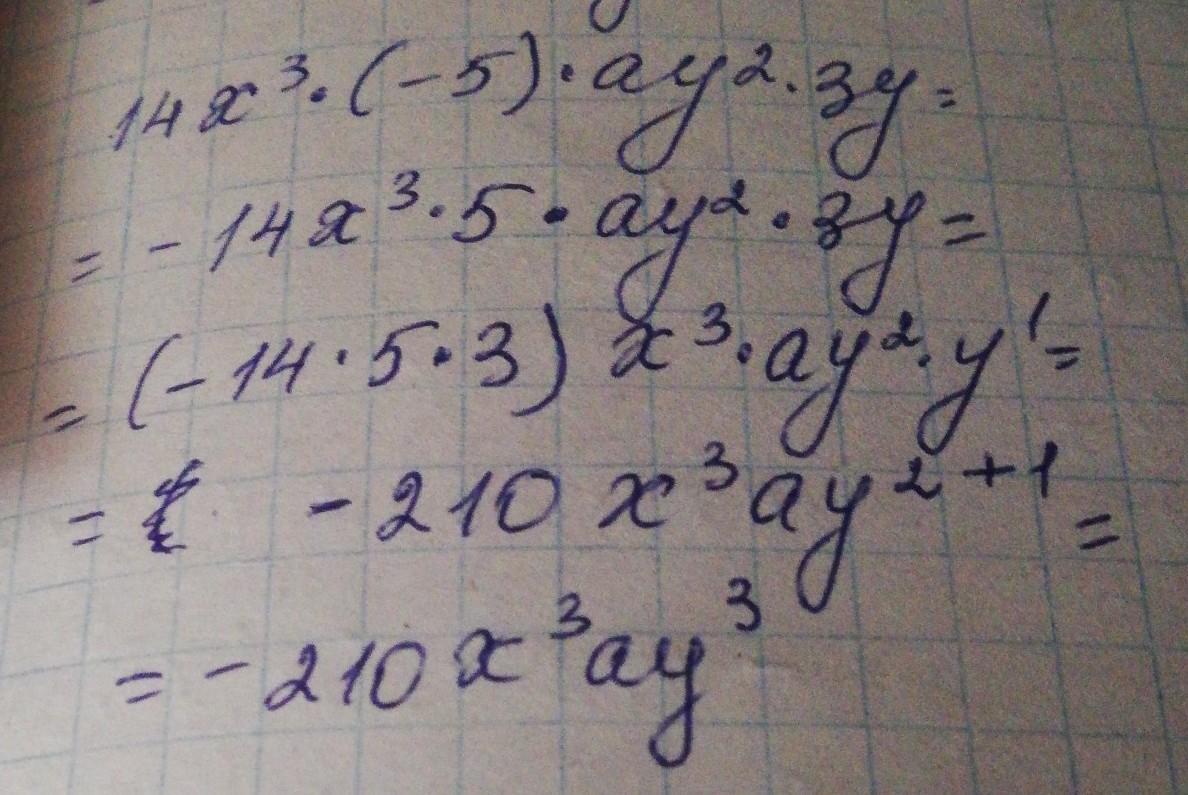 14x³·(-5)·ay²·3y=
= -14x³·5·ay²·3y=
= (-14·5·3) x³·ay²·y¹=
= -210 x³ay²⁺¹ =
= -210x³ay³